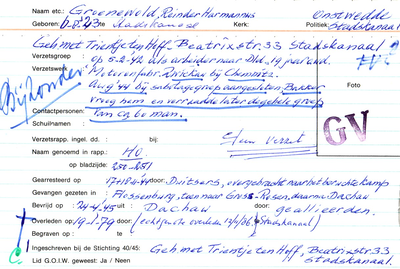 Naam etc.: Groenewold, Reinder Harmannus Onstwedde
Geboren: 6.8.23 Stadskanaal Kerk: Politiek Stadskanaal
Geh. met Trientje ten Hoff, Beatrixstr. 33 Stadskanaal
Verzetsgroep op 5-2-42 als arbeider naar Dld,
Verzetswerk Motorenfabr. Zwickau bij Chemnitz.
Aug 44 bij sabotagegroep aangesloten. Bakker
vroeg hem en verraadde later de gehele groep
Contactpersonen:
Bijzonder
Schuilnamen:
Foto
Verzetsrapp. ingel. dd. : bij: Geen verzet
GV
Naam genoemd in rapp.: HO
op bladzijde: 250-251
Gearresteerd op door: Duitsers, overgebracht naar het beruchte kamp
Gevangen gezeten in Flossenburg, toen naar Gross-Rosen, daarna Dachau
Bevrijd op : uit Dachau door geallieerden.
Overleden op : 19-1-79 te: Stadskanaal)
Begraven op : te:
Ingeschreven bij de Stichting 40/45: Geh. met Trientje ten Hoff, Beatrixstr. 33
Lid G.O.I.W. geweest: Ja / Neen Stadskanaal.